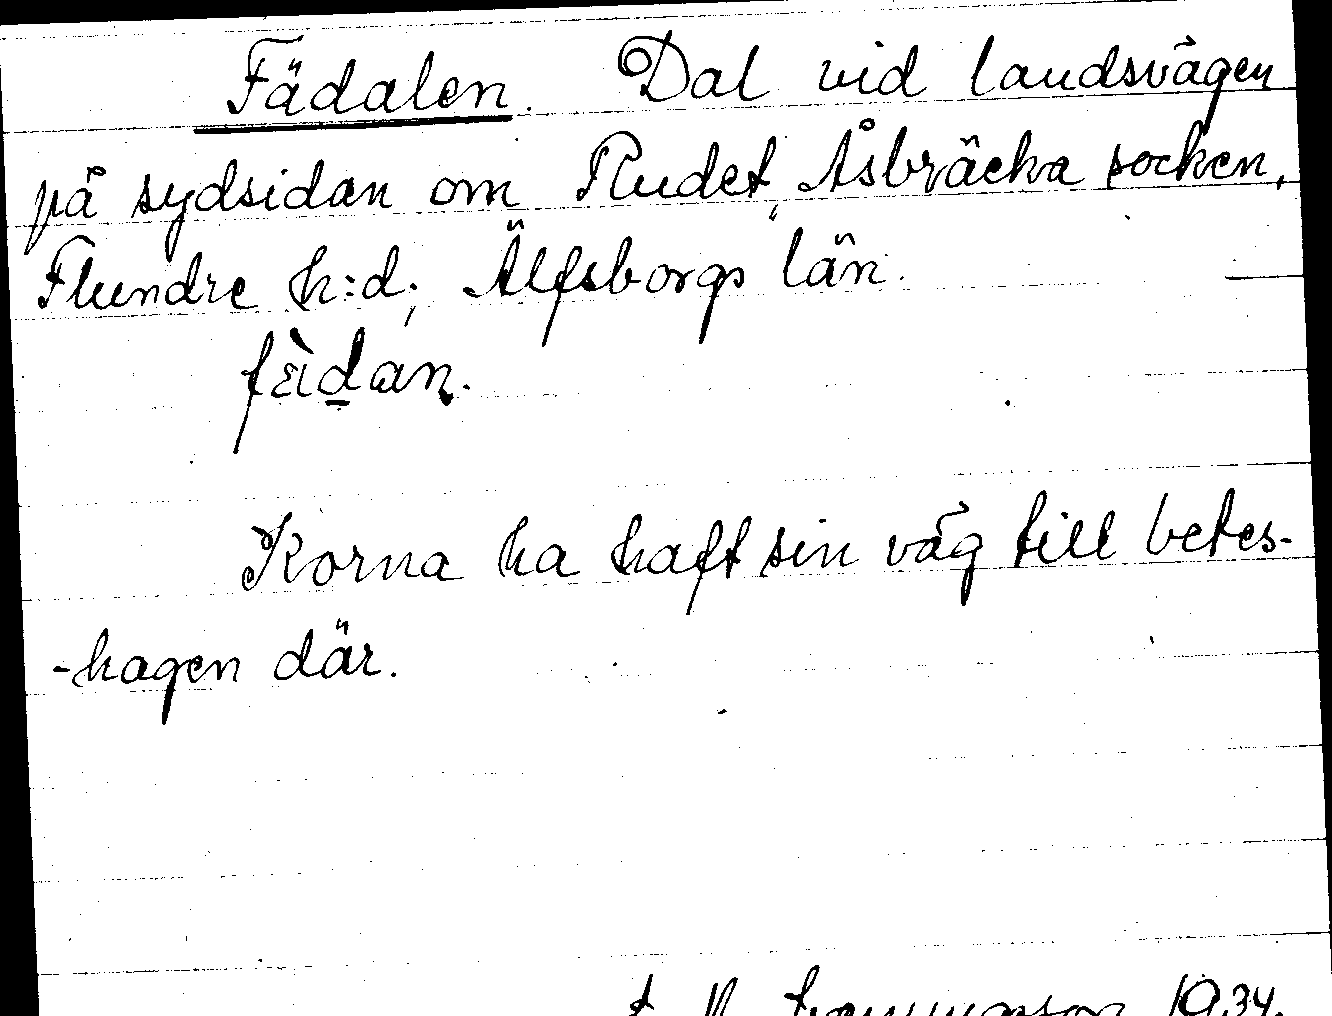 Fädalen. Dal vid landsvägen
på sydsidan om Rudet, Åsbräcka socken,
Flundre h:d; Älfsborgs län.
fädan.
Korna ha haft sin väg till betes-
-hagen där.
1934.